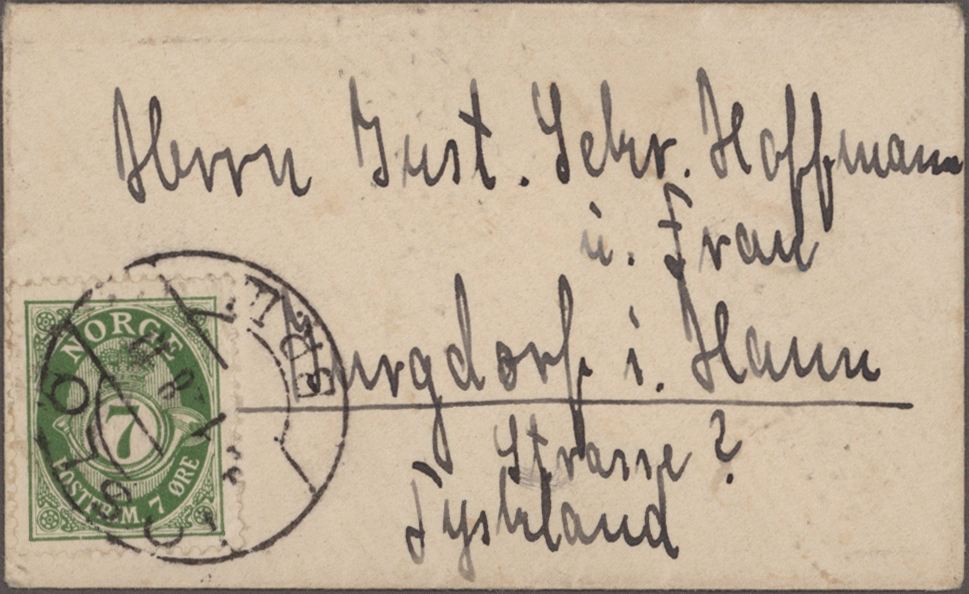 Herrn Just. Sekr. Hoffmann
u. Frau
Burgdorf i. Hann
Strasse ?
Tyskland
NORGE
7
POSTFRIM. 7 ØRE
OSLO